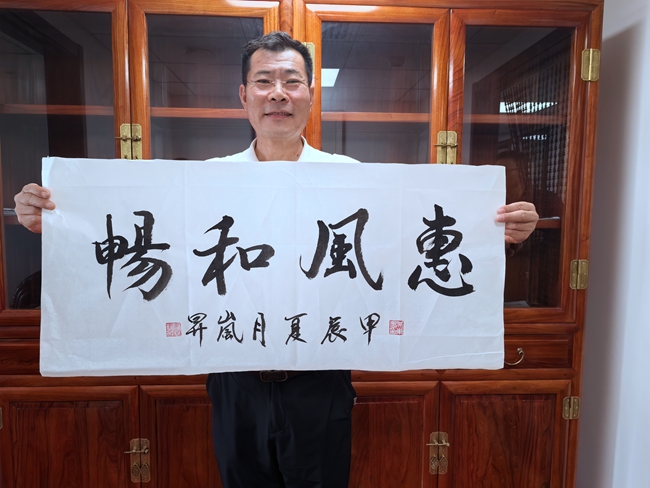 惠風和暢
甲辰夏月嵐昇